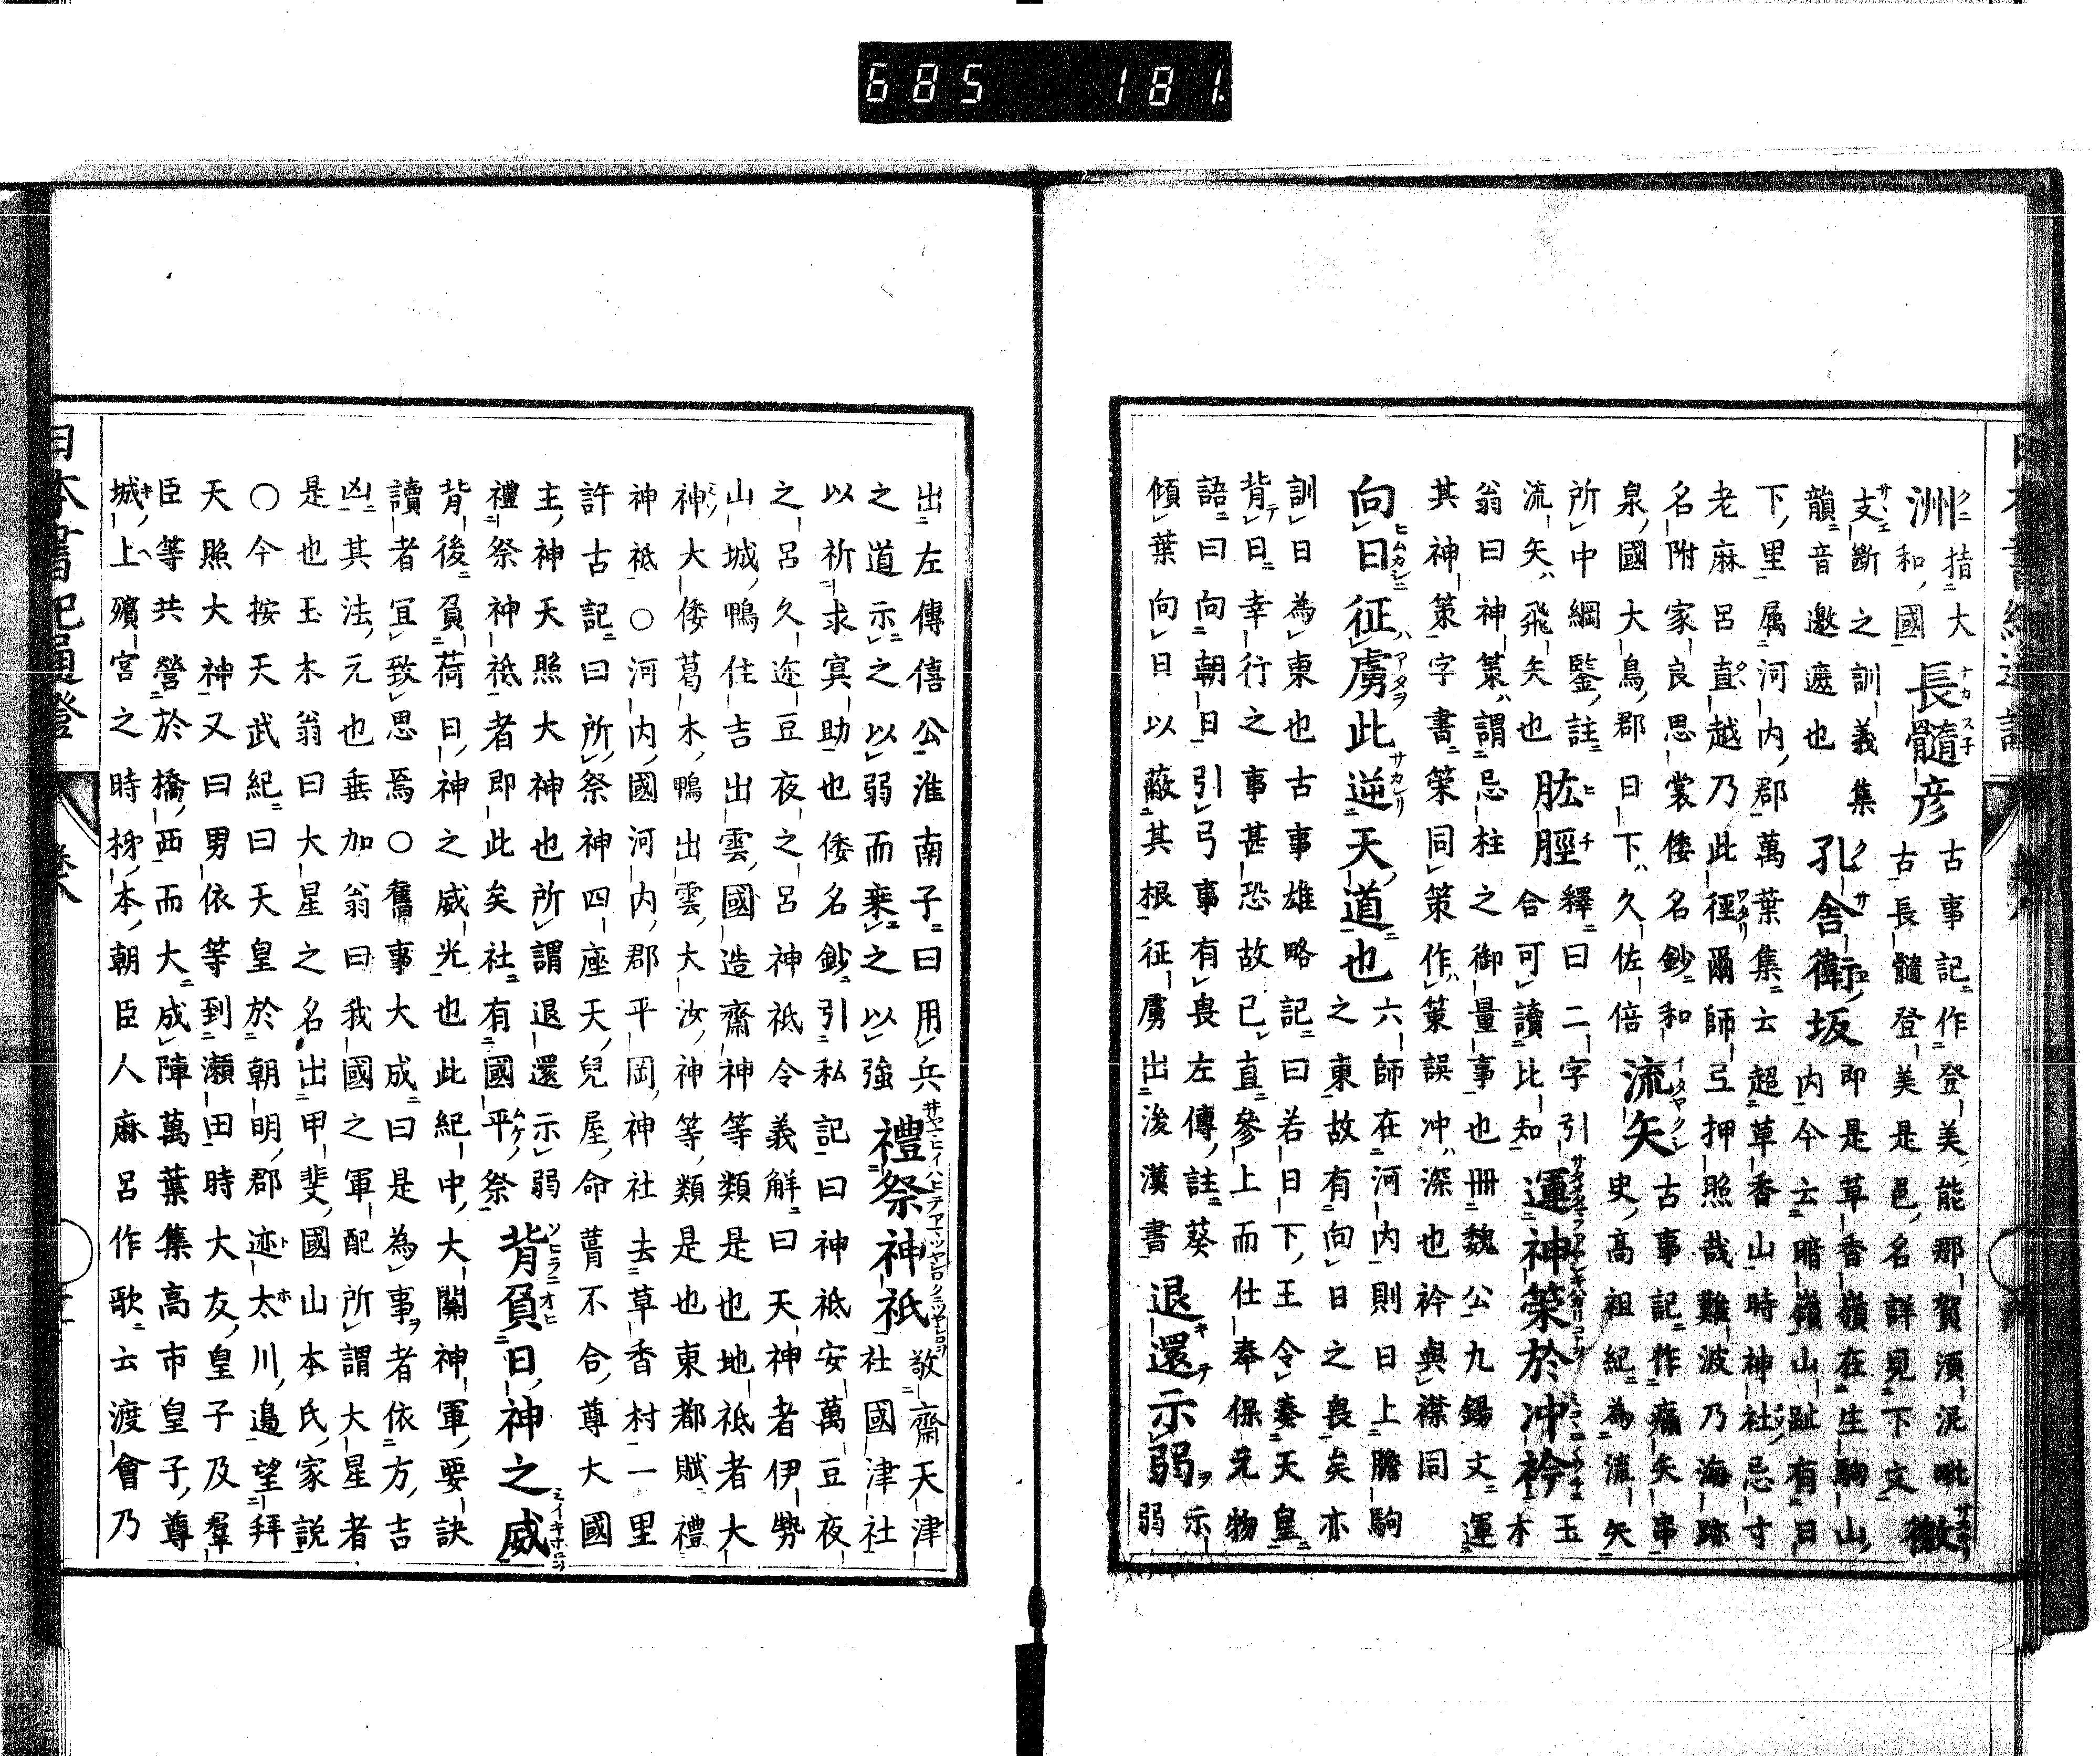 685 181.
洲 指大和國 長髓彦 古事記作登美能那賀須泥毗古長髓登美是邑名詳見下文 徼
支斷之訓義集韻音邀遮也 孔舍衛坂 即是草香嶺在生駒山内今云暗嶺山趾有日
下里属河内郡萬葉集云超草香山時神社忌寸
老麻呂直越乃此徑爾師弖押照哉難波乃海跡
名附家良思裳倭名鈔和泉國大鳥郡日下久佐倍 流矢 古事記作痛矢串史高祖紀為流矢
所中綱鑒註流矢飛矢也 肱脛 釋曰二字引合可讀比知 運神策於冲衿 玉木
翁曰神策謂忌柱之御量事也冊魏公九錫文運
其神策字書策同策作筞誤冲深也衿與襟同
向日征虜此逆天道也 六師在河内則日上膽駒之東故有向日之喪矣亦
訓日為東也古事雄略記曰若日下王令奏天皇
背日幸行之事甚恐故已直參上而仕奉保元物
語曰向朝日引弓事有喪左傳註葵傾葉向日以蔽其根征虜出後漢書 退還示弱 示弱
出左傳僖公淮南子曰用兵之道示之以弱而乗之以強 禮祭神祇 敬齋天津社國津社
以祈求冥助也倭名鈔引私記曰神祇安萬豆夜
之呂久迩豆夜之呂神祇令義解曰天神者伊勢
山城鴨住吉出雲國造齋神等類是也地祇者大
神大倭葛木鴨出雲大汝神等類是也東都賦禮
神祇○河内國河内郡平岡神社去草香村一里
許古記曰所祭神四座天兒屋命菺不合尊大國
主神天照大神也所謂退還示弱禮祭神祇者即此矣社有國平祭 背負日神之威
背後負荷日神之威光也此紀中大關神軍要訣
讀者冝致思焉○舊事大成曰是為事者依方吉
凶其法元也垂加翁曰我國之軍配所謂大星者
是也玉木翁曰大星之名出甲斐國山本氏家説
○今按天武紀曰天皇於朝明郡迹太川邉望拜
天照大神又曰男依等到瀬田時大友皇子及羣
臣等共營於橋西而大成陣萬葉集高市皇子尊
城上殯宮之時柹本朝臣人麻呂作歌云渡會乃